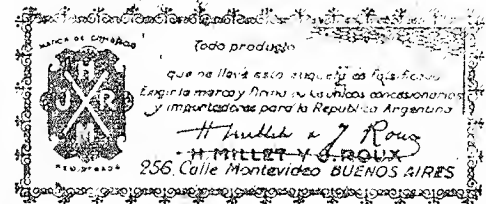 MARCA DE COMERCIO
H
J R
M
REGISTRADA
Todo producto
que no lleve esta etiqueta es falsificado
Exigir la marca y firma de los únicos concesionarios
y importadores para la Republica Argentina
H Millet & J Roux
H. MILLET Y J. ROUX
256, Calle Montevideo BUENOS AIRES